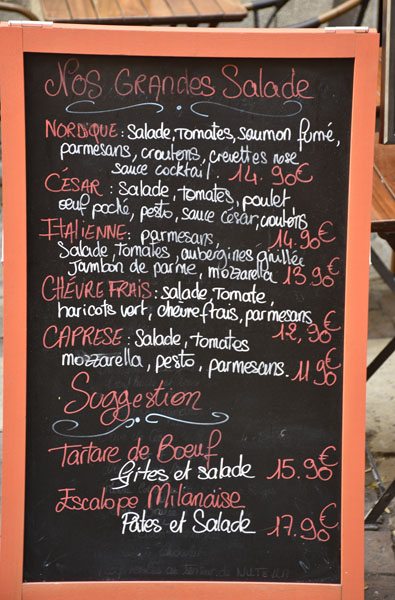 Nos GRANDES Salade
NORDIQUE : Salade, Tomates, Saumon fumé,
parmesans, croutons, crevettes rose
sauce cocktail. 14.90€
CÉSAR : Salade, tomates, poulet
oeuf poché, pesto, sauce césar, croutons
14.90€
ITALIENNE : parmesans,
Salade, Tomates, aubergines grillée
Jambon de parme, mozzarella 13.90€
CHÈVRE FRAIS : salade, Tomate,
haricots vert, chèvre frais, parmesans
12,90€
CAPRESE : Salade, tomates
mozzarella, pesto, parmesans. 11.90€
Suggestion
Tartare de Boeuf
Grites et salade 15.90€
Escalope Milanaise
Pates et Salade 17.90€